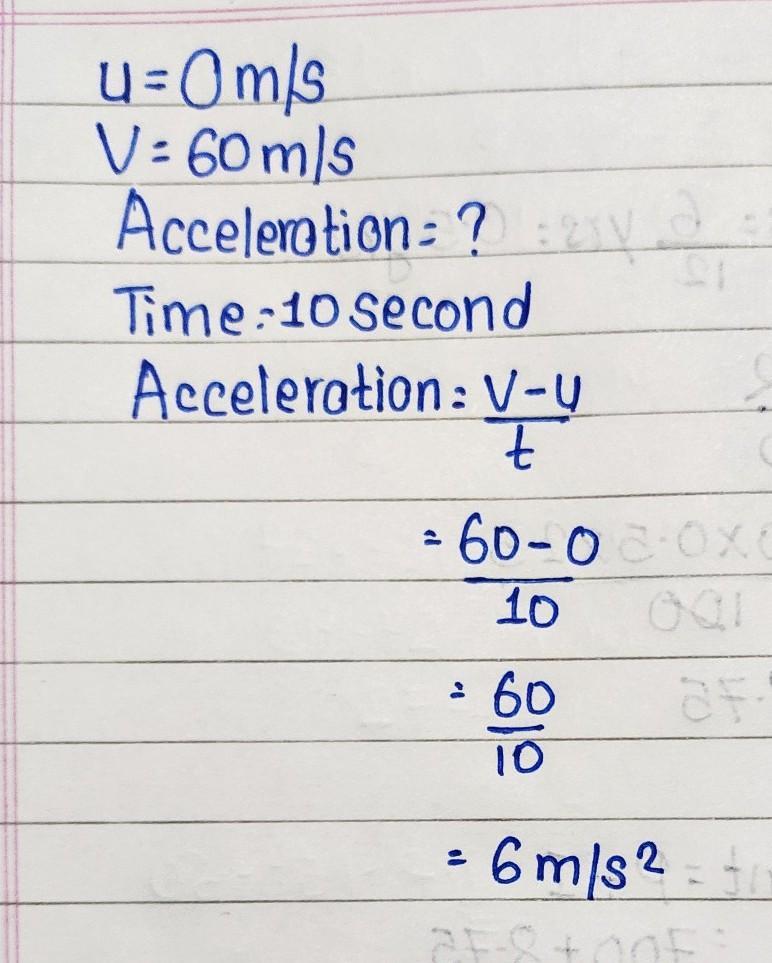 u=0m/s
V=60m/s
Acceleration=?
Time:-10second
Acceleration=V-u
t
=60-0
10
=60
10
=6m/s²